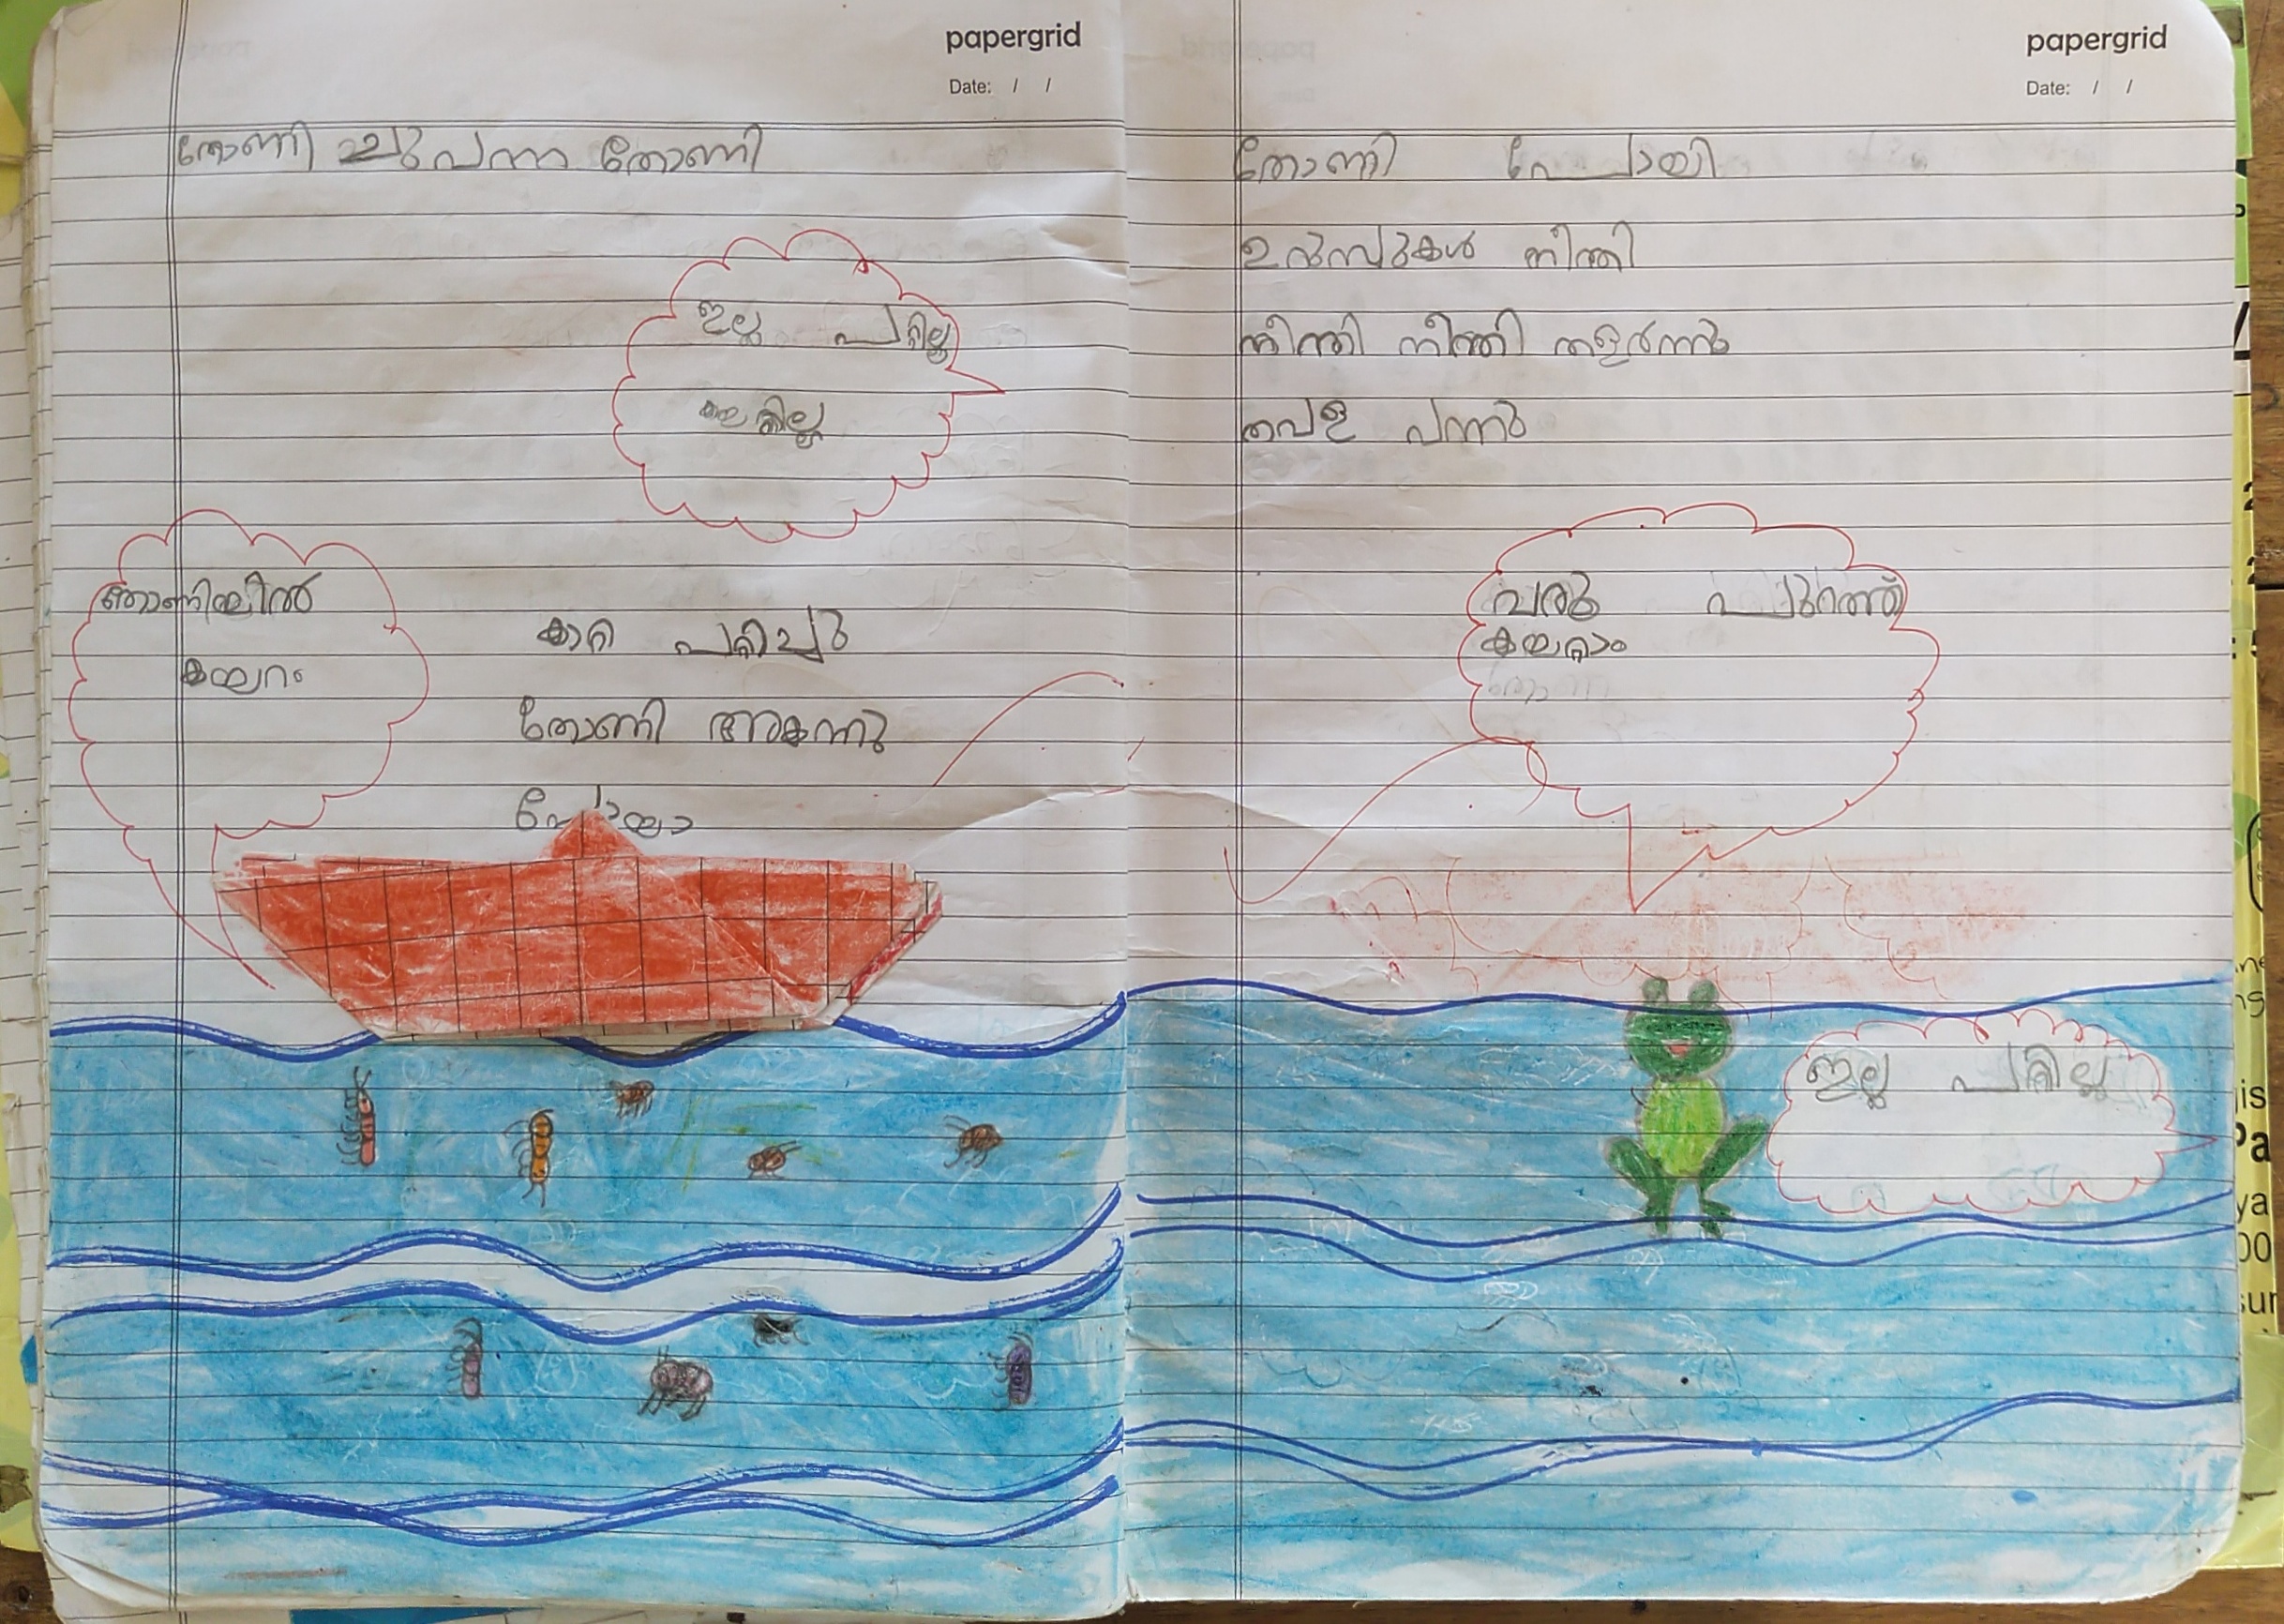 papergrid
Date: / /
തോണി ചുപന്ന തോണി
ഇല്ല പറ്റില്ല
തോണിയിൽ
കയറാം
കാറ്റ പറ്റിച്ചു
തോണി അകന്നു
പോയാ
papergrid
Date: / /
തോണി പോയി
ഉറുമ്പുകൾ നീന്തി
നീന്തി നീന്തി തളർന്നു
തവള പന്നു
വരു പുറത്ത്
കയറ്റാം
ഇല്ല പറ്റില്ല